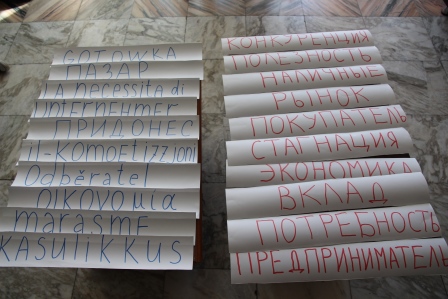 GOTOWKA
ПАЗАР
LA necessita di
Internehmer
ПРИДОНЕС
il-Kompetizzjoni
Odběratel
oikovouia
marasme
KASULIKKUS
КОНКУРЕНЦИЯ
ПОЛЕЗНОСТЬ
НАЛИЧНЫЕ
РЫНОК
ПОКУПАТЕЛЬ
СТАГНАЦИЯ
ЭКОНОМИКА
ВКЛАД
ПОТРЕБНОСТЬ
ПРЕДПРИНИМАТЕЛЬ